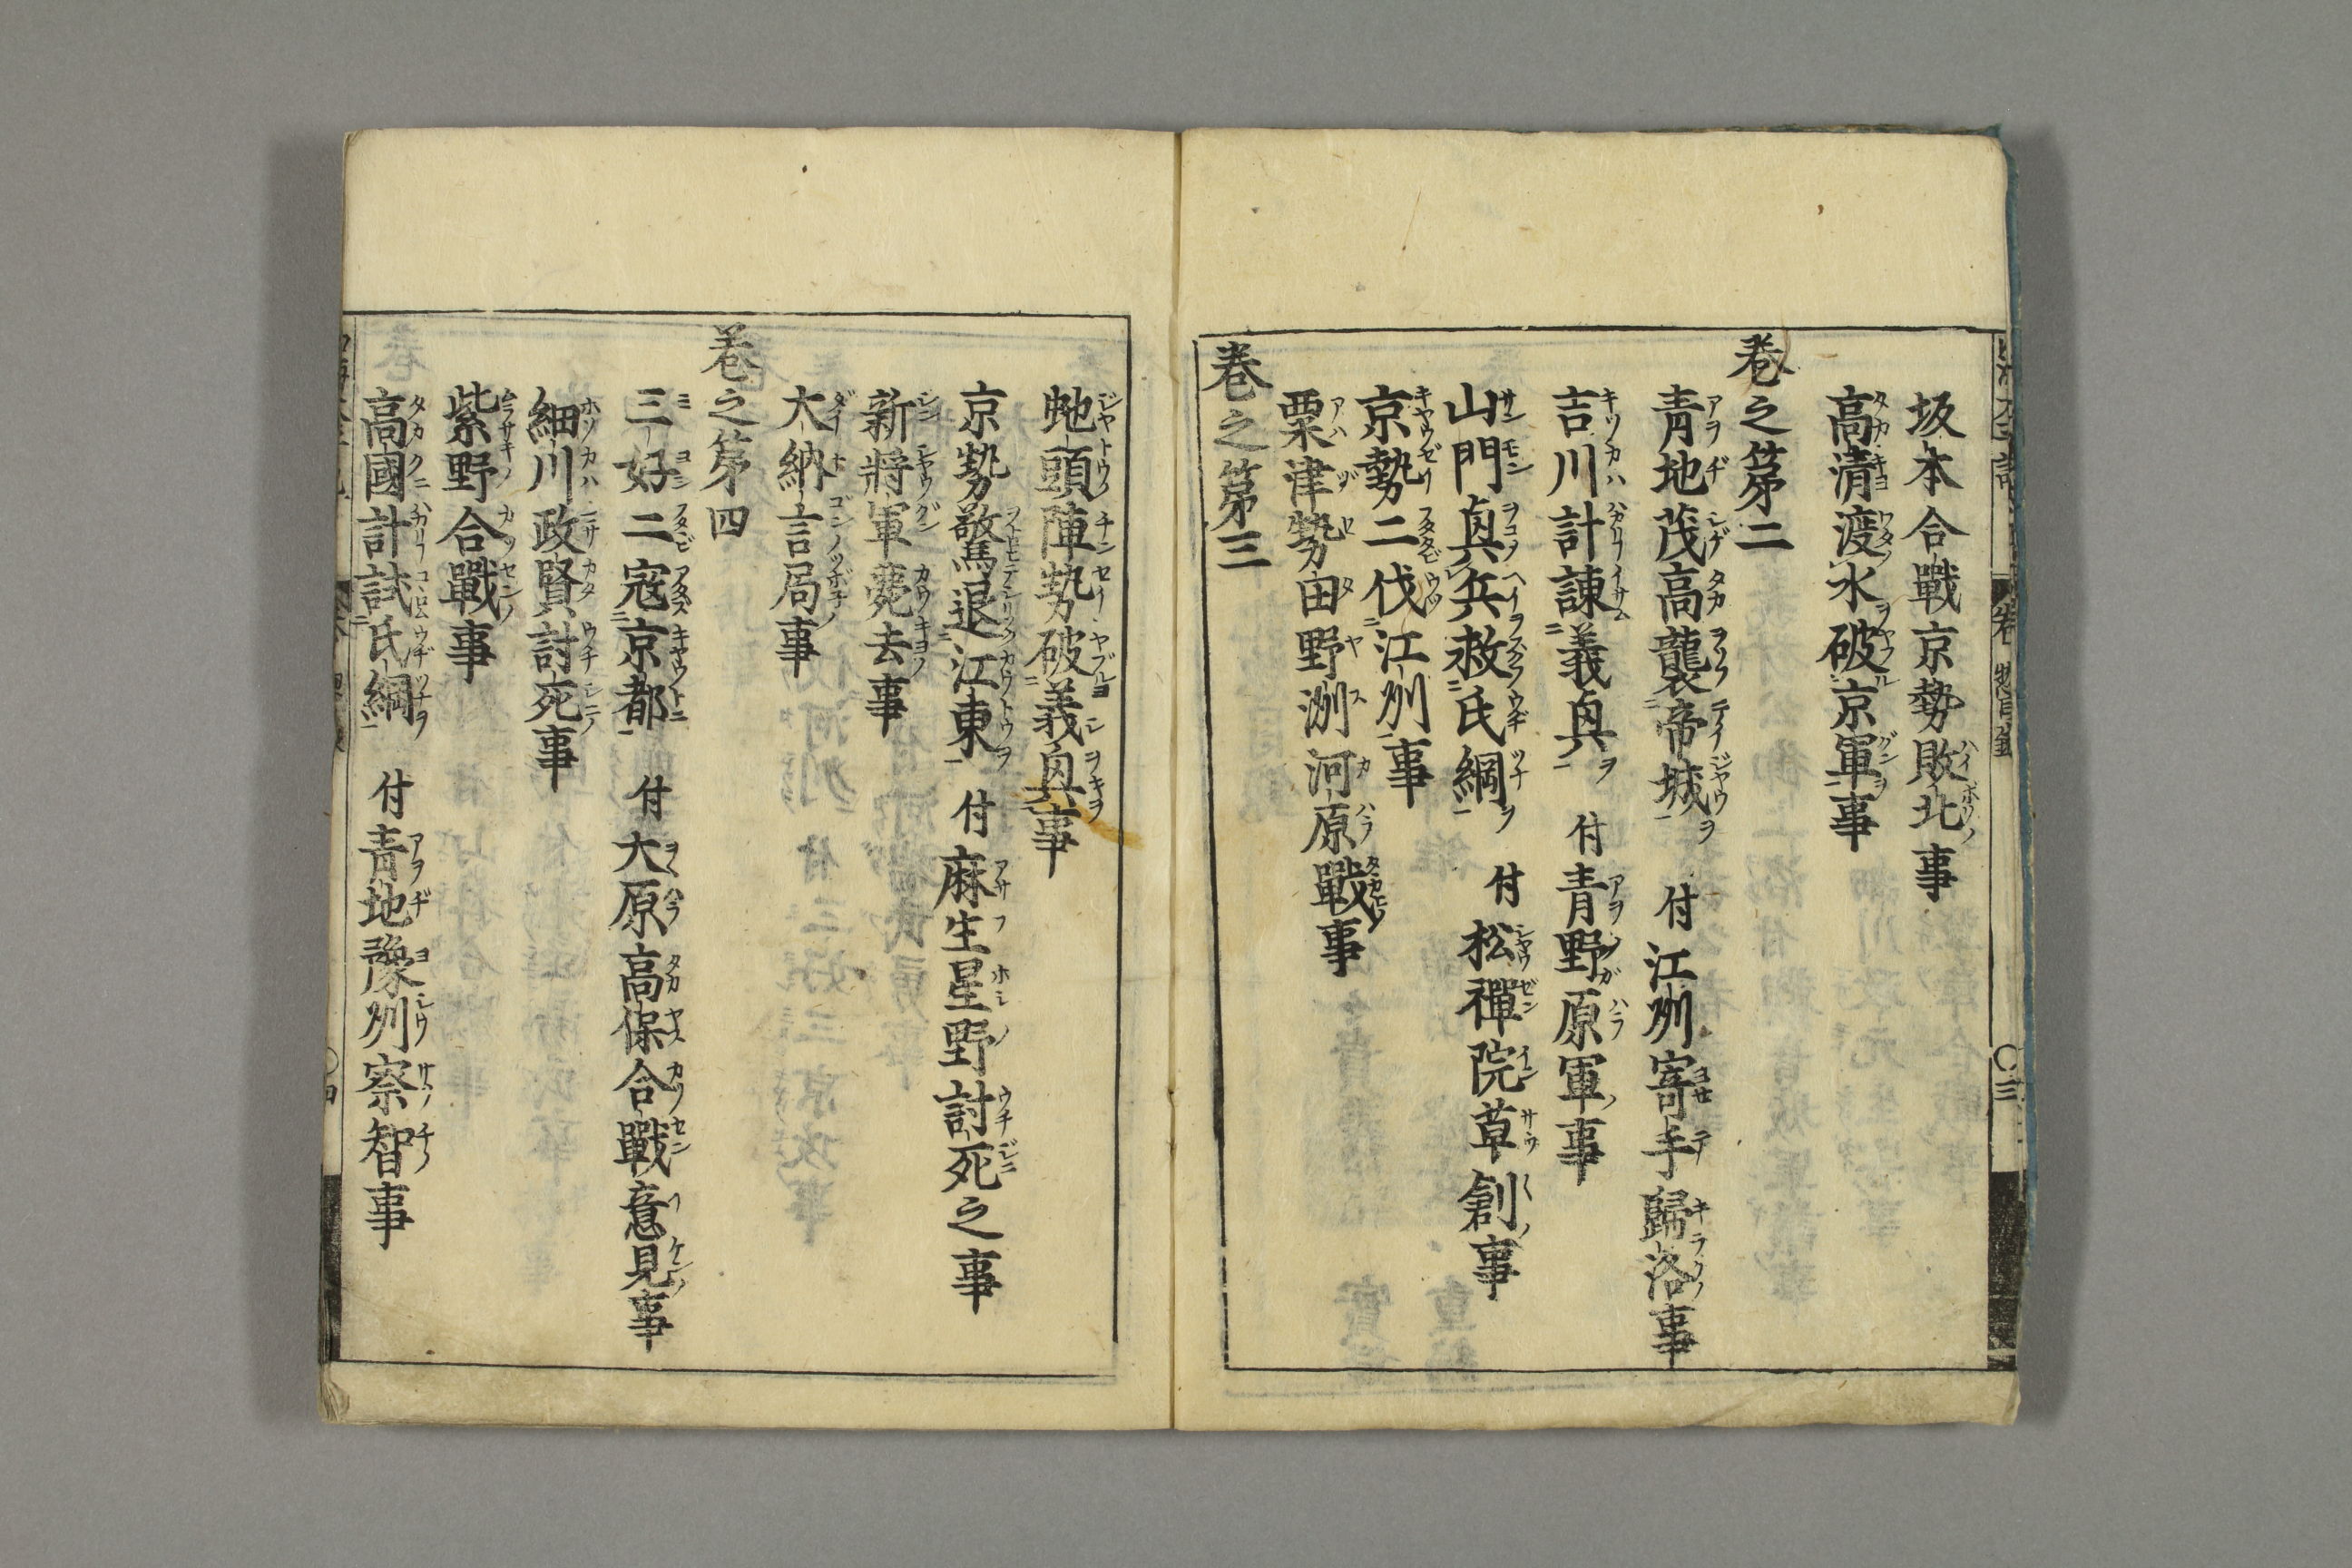 坂本合戰京勢敗北事
高清渡水破京軍事
巻之第二
青地茂高襲帝城 付江州寄手歸洛事
吉川計諫義眞 付青野原軍事
山門眞兵救氏綱 付松禪院草創事
京勢二伐江州事
粟津勢田野洲河原戰事
巻之第三
虵頭陣勢破義眞事
京勢驚退江東 付麻生星野討死之事
新將軍薨去事
大納言局事
巻之第四
三好二寇京都 付大原高保合戰意見事
細川政賢討死事
紫野合戰事
高國計試氏綱 付青地豫州察智事